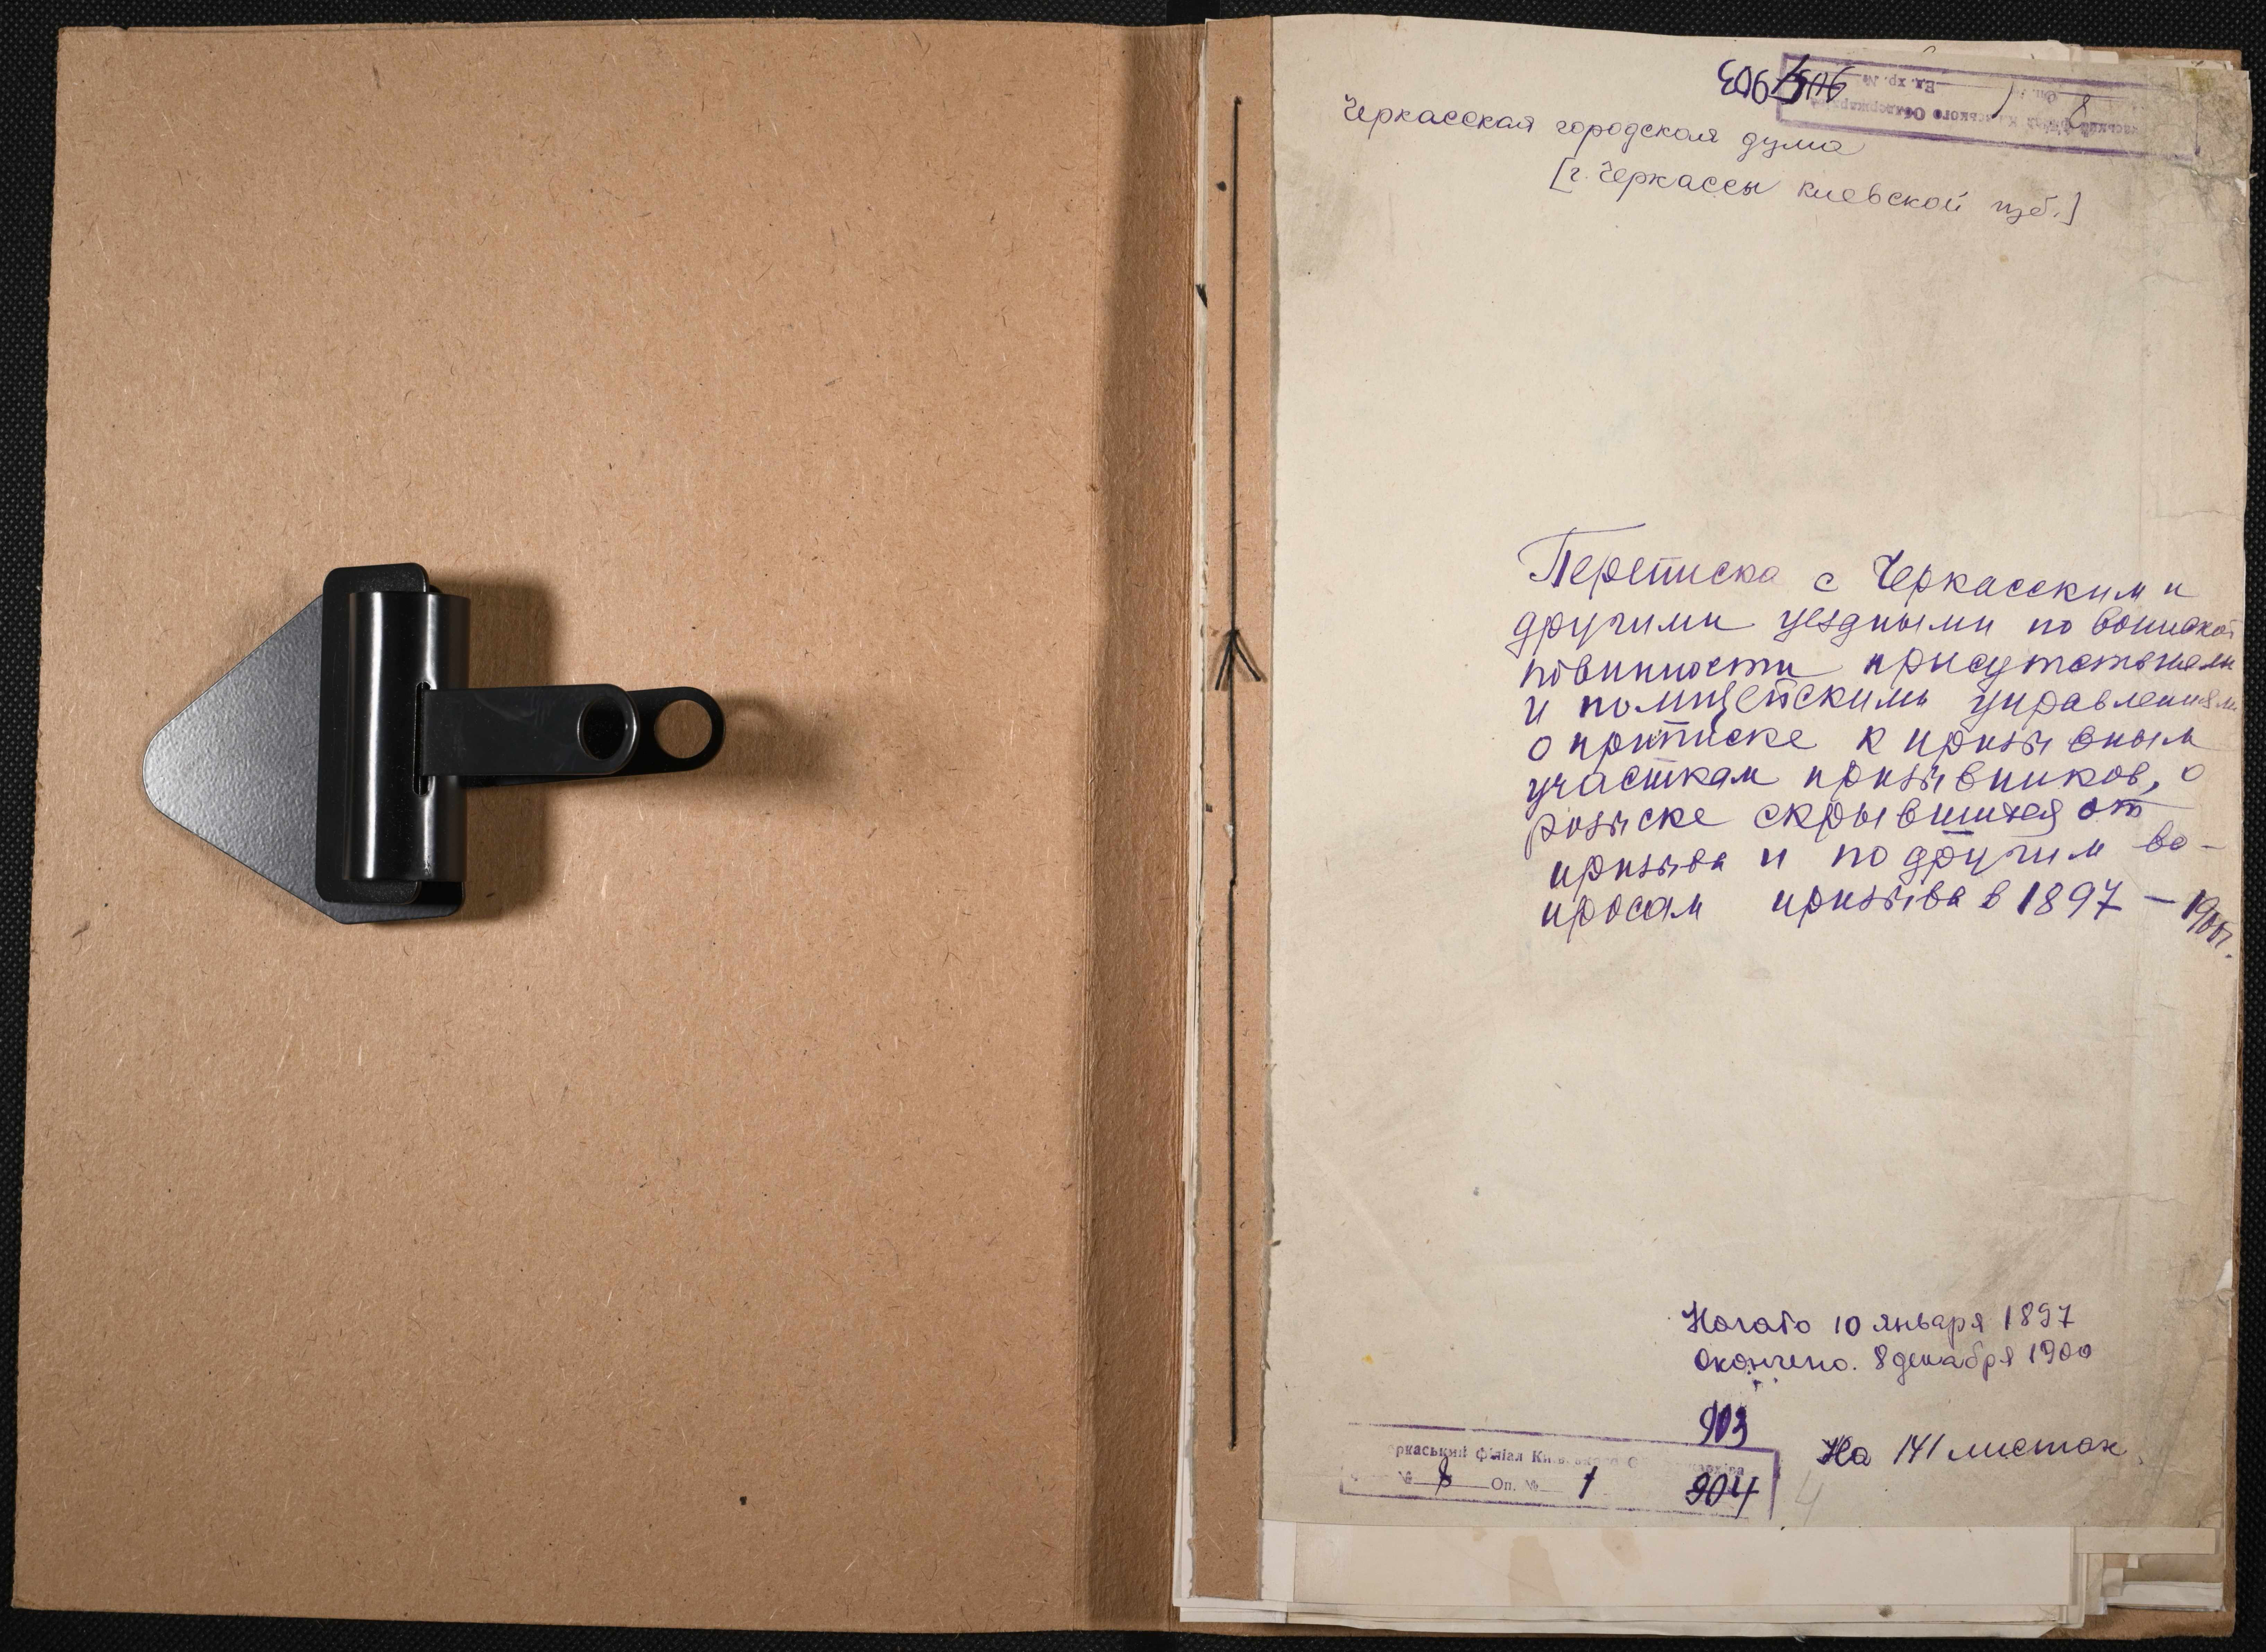 903
Черкасская городская дума
[г. Черкассы киевской губ.]
Переписка с Черкасским и
другими уездными по воинской
повинности присутствиями
и полицейскими управлениями
о приписке к призывным
участкам призывников, о
розыске скрывшихся от
призыва и по другим во-
просам призыва в 1897 - 1900г.
Начато 10 января 1897
Окончено. 8 декабря 1900
903
На 141 листах.
ркаський філіал Київського
№ 8 Оп. № 1 904